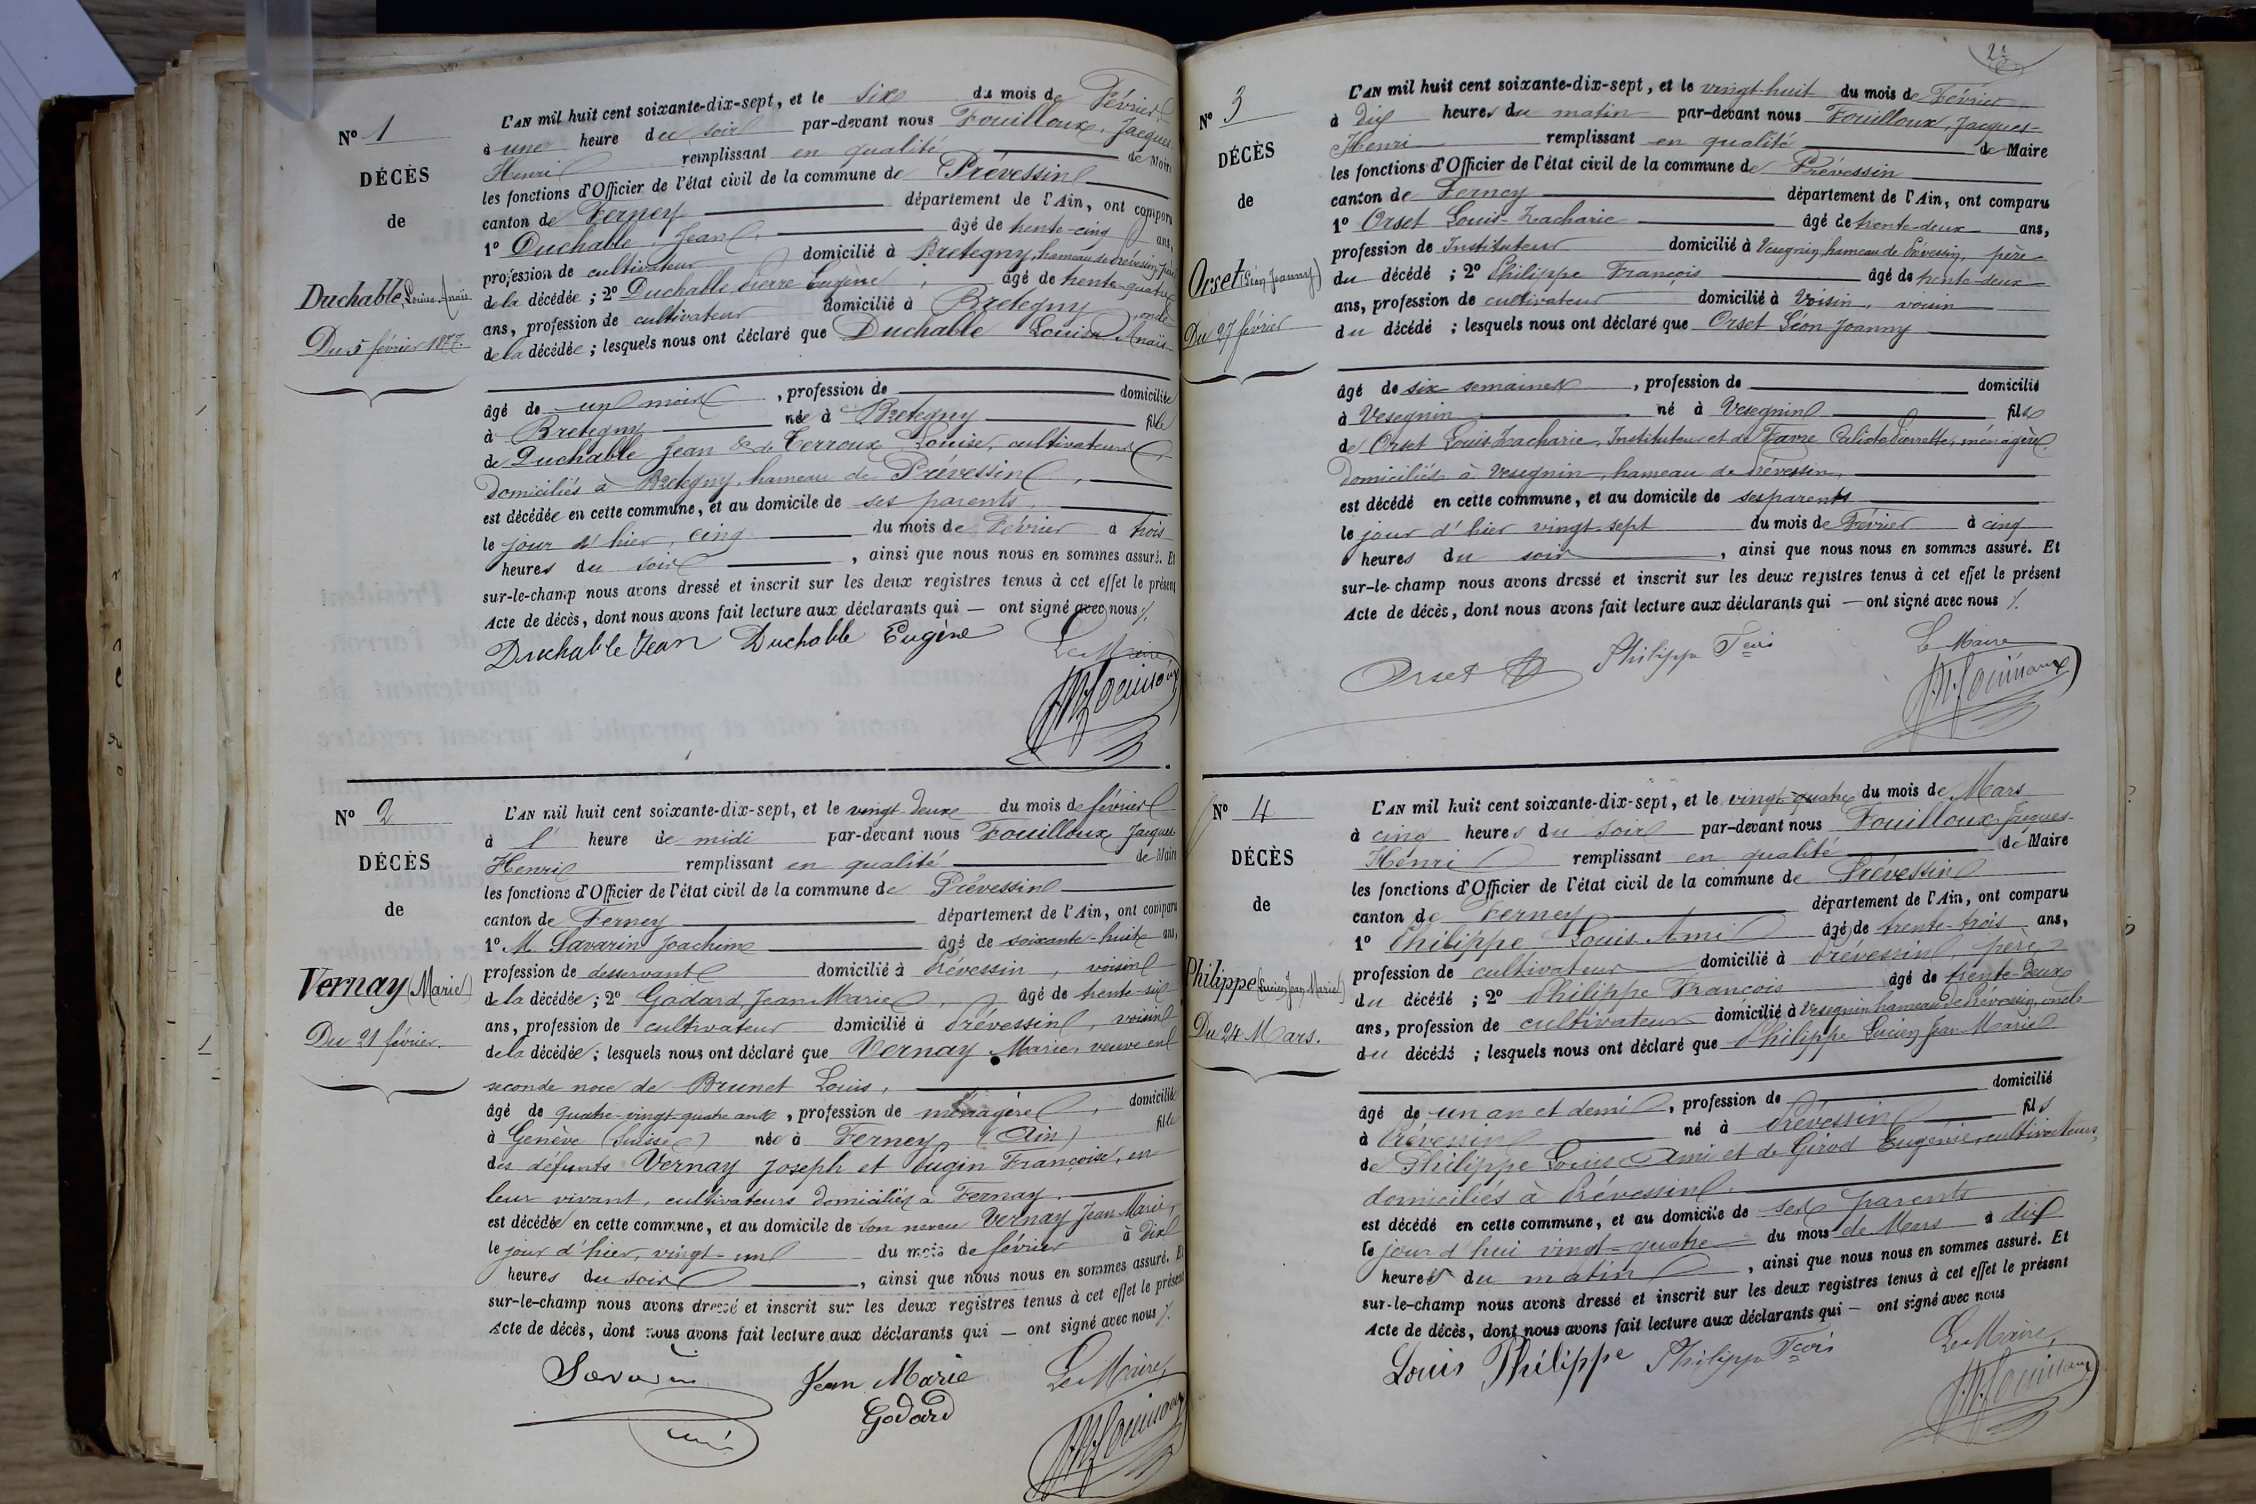 N° 1
DÉCÈS
de
Duchable (Louise Anaïs)
Du 5 février 1877.
L'AN mil huit cent soixante-dix-sept, et le six du mois de Février
à une heure du soir par-devant nous Fouilloux, Jacques
Henri remplissant en qualité de Maire
les fonctions d'Officier de l'état civil de la commune de Prévessin
canton de Ferney département de l'Ain, ont comparu
1° Duchable, Jean, âgé de trente-cinq ans,
profession de cultivateur domicilié à Bretegny, hameau de Prévessin, père
de la décédée ; 2° Duchable Pierre Eugène, âgé de trente-quatre
ans, profession de cultivateur domicilié à Bretegny, oncle
de la décédée ; lesquels nous ont déclaré que Duchable Louise Anaïs
âgé de un mois, profession de domiciliée
à Bretegny née à Bretegny fille
de Duchable Jean & de Terroux Louise, cultivateurs,
domiciliés à Bretegny, hameau de Prévessin,
est décédée en cette commune, et au domicile de ses parents,
le jour d'hier, cinq du mois de Février à trois
heures du soir, ainsi que nous nous en sommes assuré. Et
sur-le-champ nous avons dressé et inscrit sur les deux registres tenus à cet effet le présent
Acte de décès, dont nous avons fait lecture aux déclarants qui — ont signé avec nous ./.
Duchable Jean Duchable Eugène Le Maire
J.H. Fouilloux
N° 2
DÉCÈS
de
Vernay (Marie)
Du 21 février.
L'AN mil huit cent soixante-dix-sept, et le vingt-deux du mois de février
à l' heure de midi par-devant nous Fouilloux Jacques
Henri remplissant en qualité de Maire
les fonctions d'Officier de l'état civil de la commune de Prévessin
canton de Ferney département de l'Ain, ont comparu
1° M. Savarin Joachim âgé de soixante-huit ans,
profession de desservant domicilié à Prévessin, voisin
de la décédée ; 2° Godard Jean Marie, âgé de trente-six
ans, profession de cultivateur domicilié à Prévessin, voisin
de la décédée ; lesquels nous ont déclaré que Vernay Marie, veuve en
seconde noce de Brunet Louis,
âgé de quatre-vingt-quatre ans, profession de ménagère, domiciliée
à Genève (Suisse) née à Ferney (Ain) fille
des défunts Vernay Joseph et Pugin Françoise, en
leur vivant, cultivateurs domiciliés à Fernay.
est décédée en cette commune, et au domicile de son neveu Vernay Jean Marie,
le jour d'hier, vingt-un du mois de février à dix
heures du soir, ainsi que nous nous en sommes assuré. Et
sur-le-champ nous avons dressé et inscrit sur les deux registres tenus à cet effet le présent
Acte de décès, dont nous avons fait lecture aux déclarants qui — ont signé avec nous ./.
Savarin Jean Marie Le Maire,
Godard
J.H. Fouilloux
N° 3
DÉCÈS
de
Orset (Léon Joanny)
Du 27 février
L'AN mil huit cent soixante-dix-sept, et le vingt-huit du mois de Février
à dix heures du matin par-devant nous Fouilloux, Jacques-
Henri remplissant en qualité de Maire
les fonctions d'Officier de l'état civil de la commune de Prévessin
canton de Ferney département de l'Ain, ont comparu
1° Orset Louis-Zacharie âgé de trente-deux ans,
profession de Instituteur domicilié à Vesegnin, hameau de Prévessin, père
du décédé ; 2° Philippe François âgé de trente-deux
ans, profession de cultivateur domicilié à Voisin, voisin
du décédé ; lesquels nous ont déclaré que Orset Léon Joanny
âgé de six semaines, profession de domicilié
à Vesegnin né à Vesegnin fils
de Orset Louis-Zacharie, Instituteur et de Favre Pierrette, ménagère
domiciliés à Vesegnin, hameau de Prévessin,
est décédé en cette commune, et au domicile de ses parents
le jour d'hier vingt-sept du mois de Février à cinq
heures du soir, ainsi que nous nous en sommes assuré. Et
sur-le-champ nous avons dressé et inscrit sur les deux registres tenus à cet effet le présent
Acte de décès, dont nous avons fait lecture aux déclarants qui — ont signé avec nous ./.
Orset Philippe Fcois Le Maire
J.H. Fouilloux
N° 4
DÉCÈS
de
Philippe (Lucien Jean Marie)
Du 24 Mars.
L'AN mil huit cent soixante-dix-sept, et le vingt-quatre du mois de Mars
à cinq heures du soir par-devant nous Fouilloux Jacques-
Henri remplissant en qualité de Maire
les fonctions d'Officier de l'état civil de la commune de Prévessin
canton de Ferney département de l'Ain, ont comparu
1° Philippe Louis Ami âgé de trente-trois ans,
profession de cultivateur domicilié à Prévessin, père
du décédé ; 2° Philippe François âgé de trente-deux
ans, profession de cultivateur domicilié à Vesegnin hameau de Prévessin, oncle
du décédé ; lesquels nous ont déclaré que Philippe Lucien Jean Marie
âgé de un an et demi, profession de domicilié
à Prévessin né à Prévessin fils
de Philippe Louis Ami et de Girod Eugénie, cultivateurs,
domiciliés à Prévessin.
est décédé en cette commune, et au domicile de ses parents
le jour d'hui vingt-quatre du mois de Mars à dix
heures du matin, ainsi que nous nous en sommes assuré. Et
sur-le-champ nous avons dressé et inscrit sur les deux registres tenus à cet effet le présent
Acte de décès, dont nous avons fait lecture aux déclarants qui — ont signé avec nous
Louis Philippe Philippe Fcois Le Maire,
J.H. Fouilloux